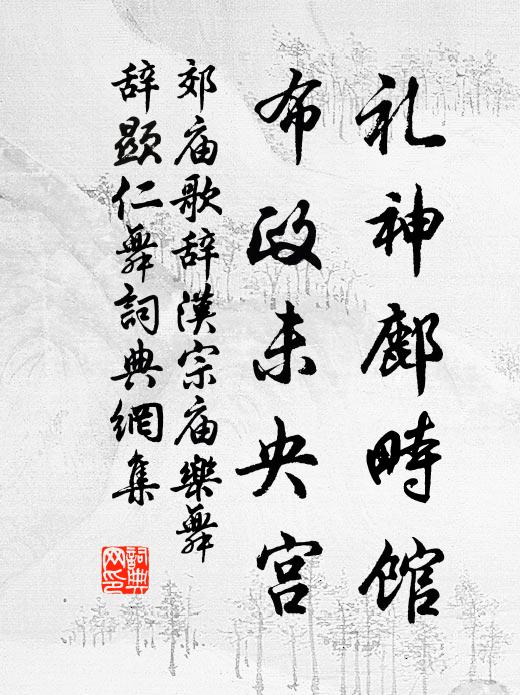 礼神鄜畤馆
布政未央宫
郊庙歌辞漢宗庙樂舞
辞顕仁舞詞典網集
詞典
网印